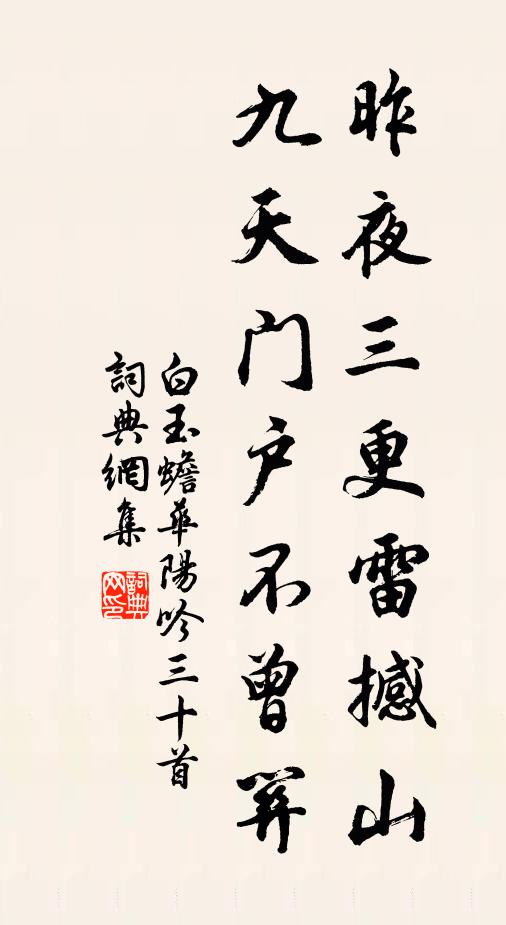 昨夜三更雷撼山
九天门户不曾關
白玉蟾華陽吟三十首
詞典網集
詞典网印